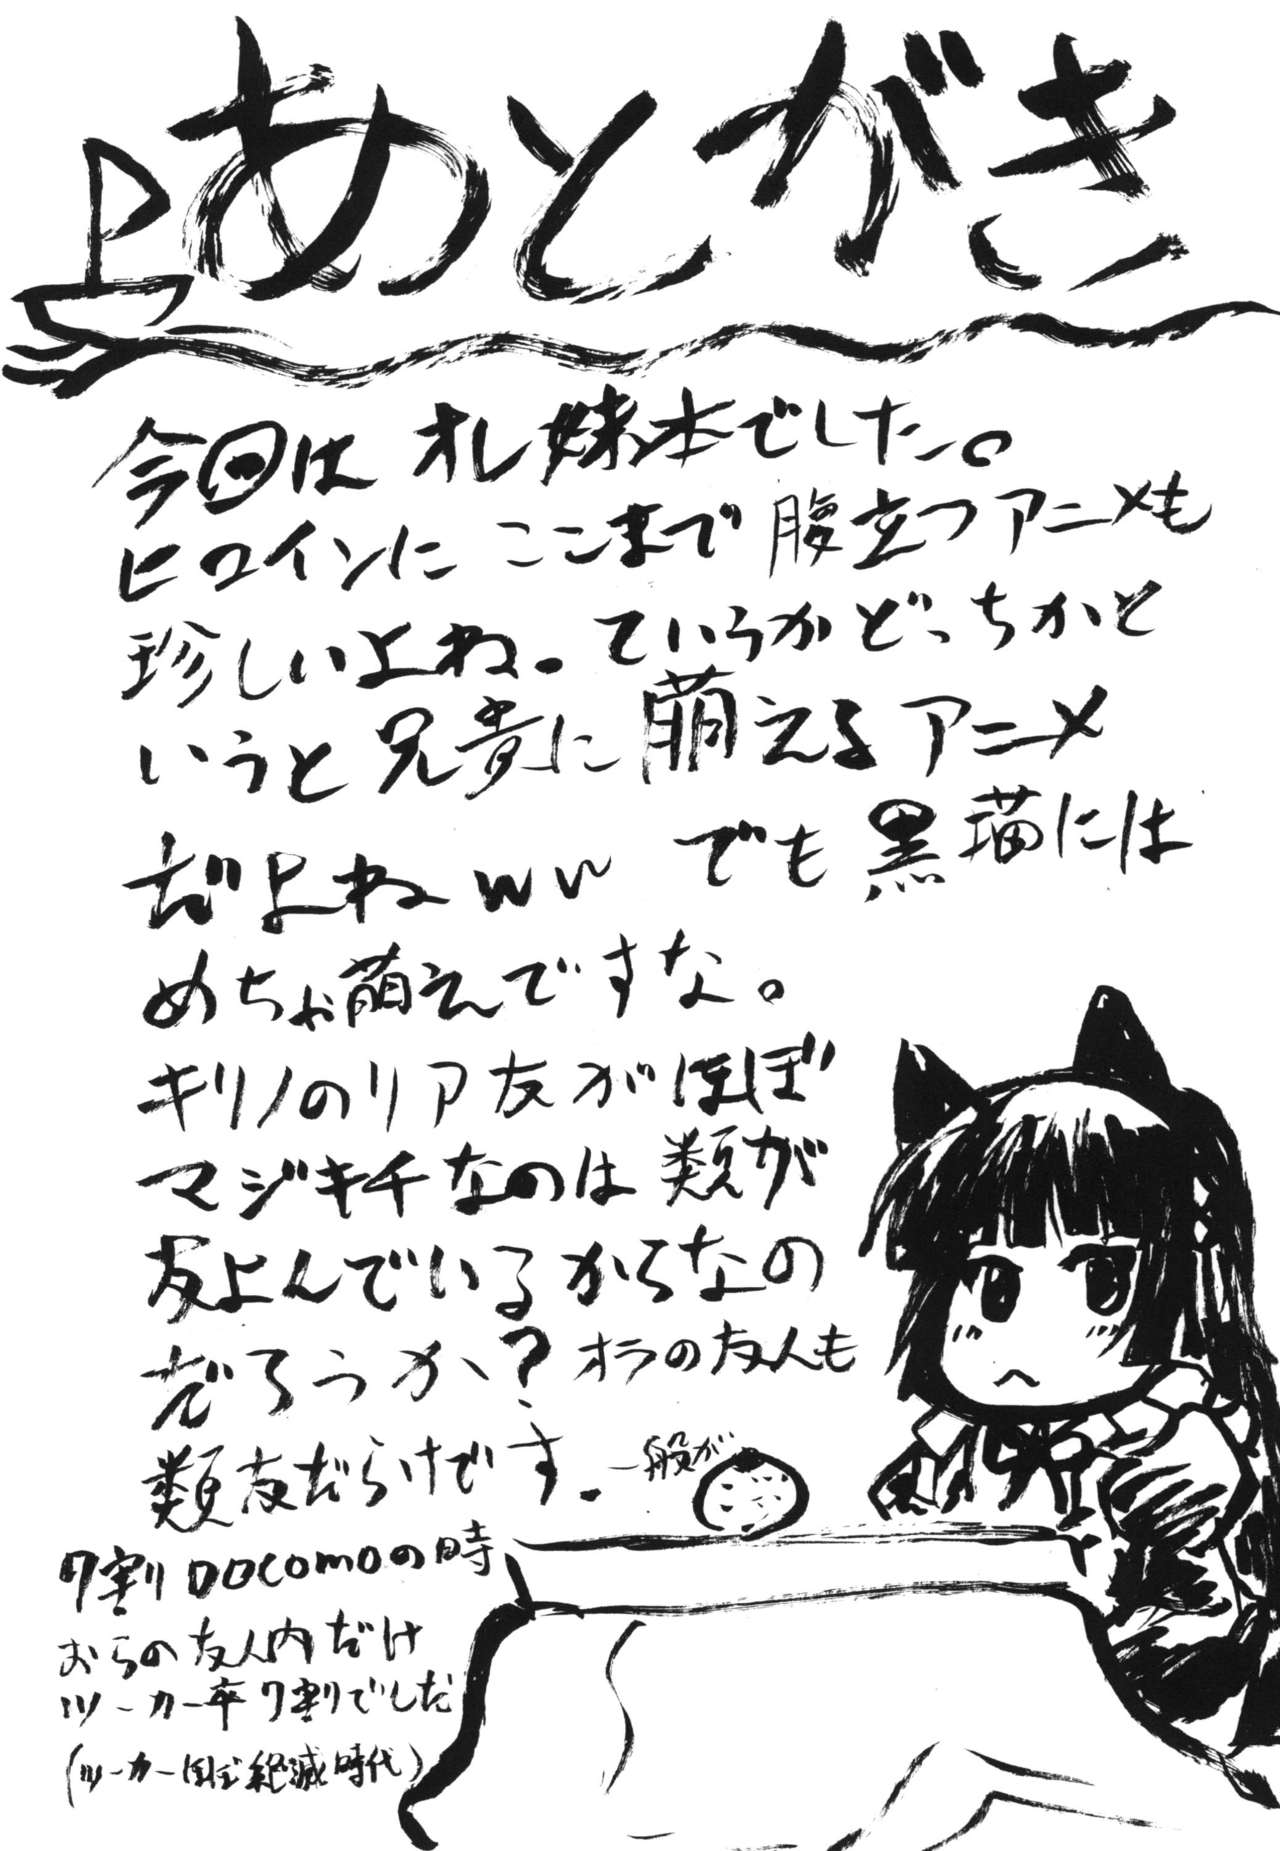 あとがき
今回は オレ妹本でした。
ヒロインに ここまで 腹立つ アニメも
珍しいよね。ていうかどっちかと
いうと 兄貴に 萌える アニメ
だよねww でも 黒猫には
めちゃ萌えですな。
キリノのリア友がほぼ
マジキチなのは 類が
友よんでいるからなの
だろうか? オラの友人も
類友だらけです。一般が
7割 DOCOMOの時
おらの友人内だけ
ツーカー率 7割でした
(ツーカーほぼ絶滅時代)